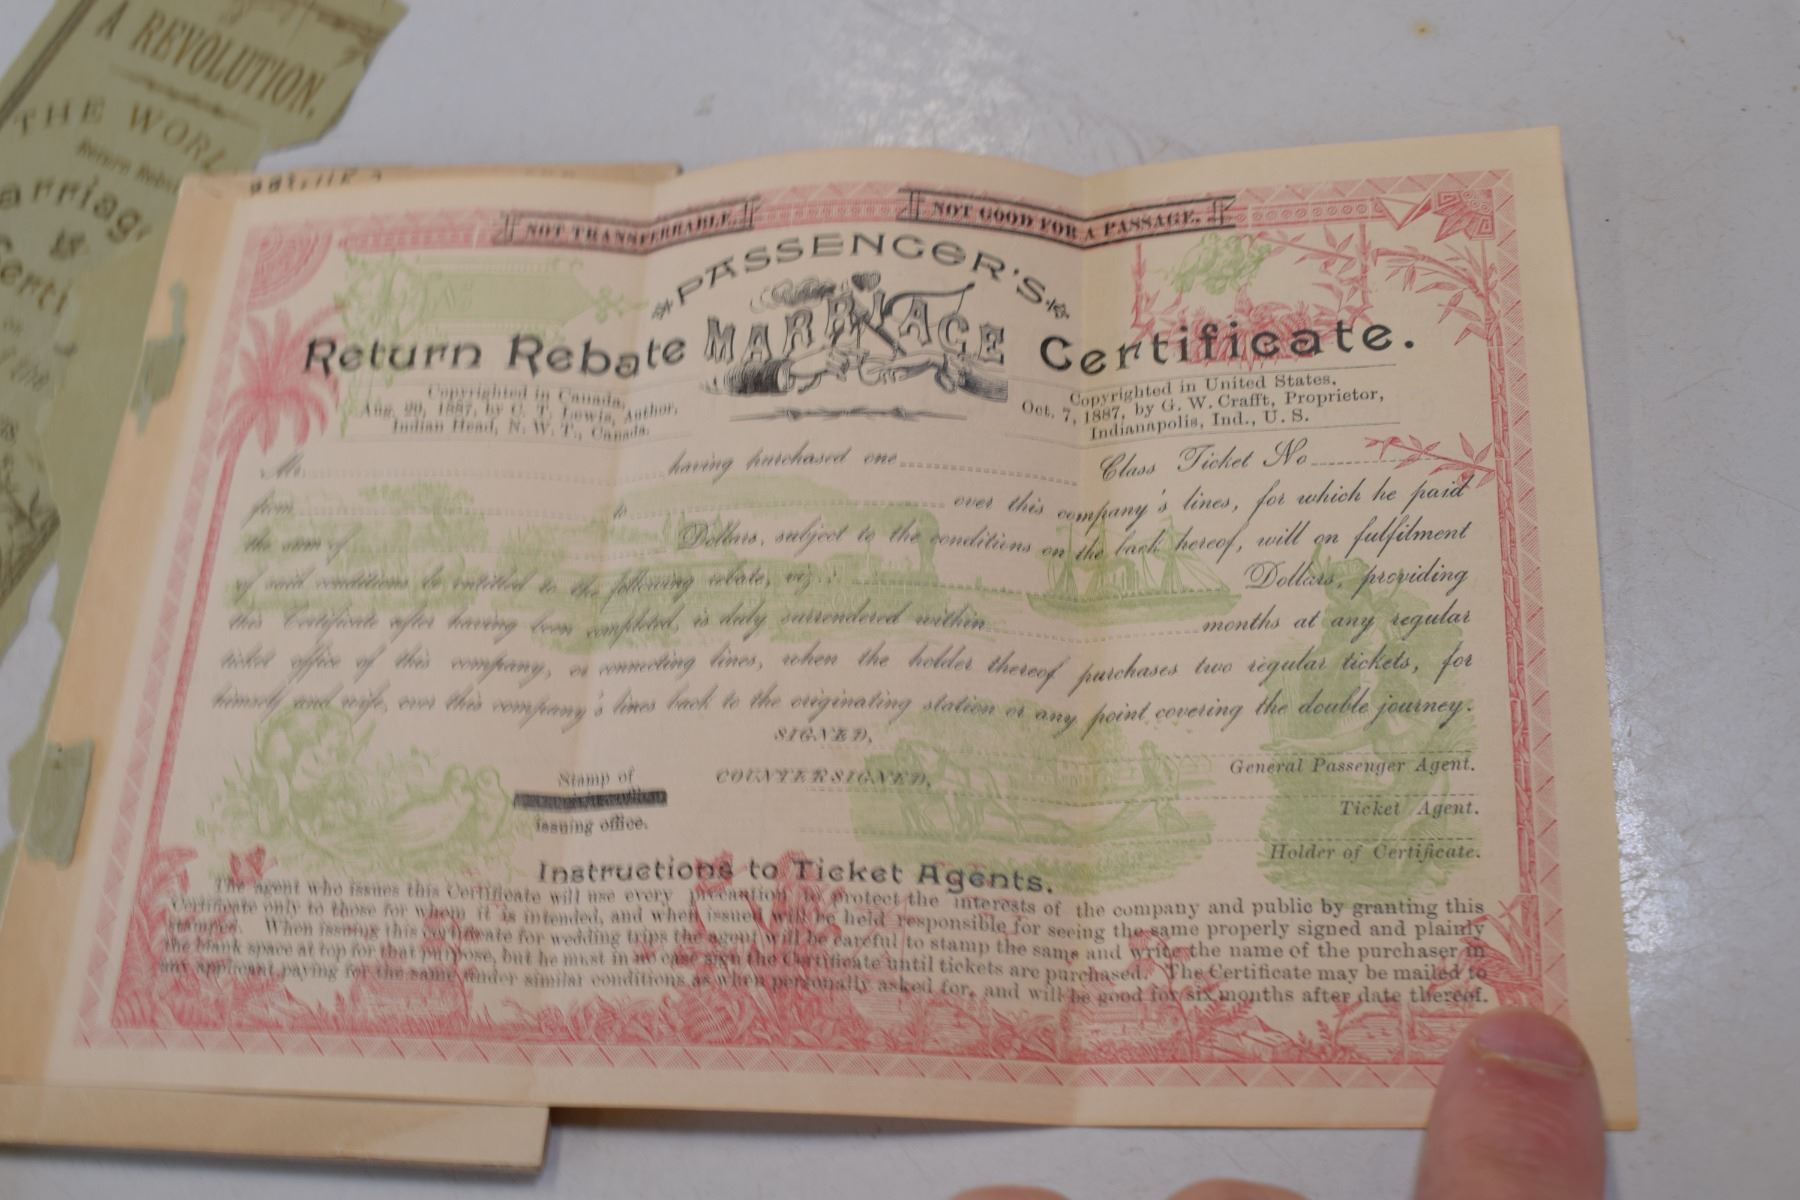 A REVOLUTION.
THE WORL
Return Rebat
arriag
&
Certi
NOT TRANSFERRABLE. NOT GOOD FOR A PASSAGE.
PASSENGER'S
Return Rebate MARRIAGE Certificate.
Copyrighted in Canada,
Aug. 20, 1887, by C. T. Lewis, Author,
Indian Head, N. W. T., Canada.
Copyrighted in United States,
Oct. 7, 1887, by G. W. Crafft, Proprietor,
Indianapolis, Ind., U. S.
Mr. having purchased one Class Ticket No
from to over this company's lines, for which he paid
the sum of Dollars, subject to the conditions on the back hereof, will on fulfilment
of said conditions be entitled to the following rebate, viz.: Dollars, providing
this Certificate after having been completed, is duly surrendered within months at any regular
ticket office of this company, or connecting lines, when the holder thereof purchases two regular tickets, for
himself and wife, over this company's lines back to the originating station or any point covering the double journey.
SIGNED,
General Passenger Agent.
Stamp of
issuing office.
COUNTERSIGNED,
Ticket Agent.
Holder of Certificate.
Instructions to Ticket Agents.
The agent who issues this Certificate will use every precaution to protect the interests of the company and public by granting this
Certificate only to those for whom it is intended, and when issued will be held responsible for seeing the same properly signed and plainly
stamped. When issuing this certificate for wedding trips the agent will be careful to stamp the same and write the name of the purchaser in
the blank space at top for that purpose, but he must in no case sign the Certificate until tickets are purchased. The Certificate may be mailed to
any applicant paying for the same under similar conditions as when personally asked for, and will be good for six months after date thereof.